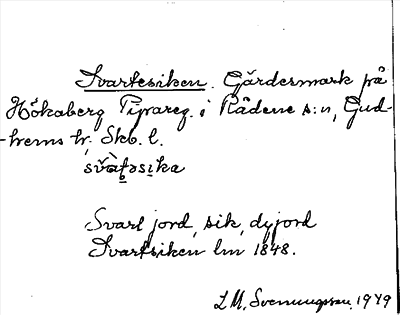 Svartesiken. Gärdesmark på
Hökaberg i Rådene s:n, Gud-
-hems hr, Skb. l.
Svart jord, sik, dyjord
Svartsiken lm 1848.
L M. Svenungsson. 1979